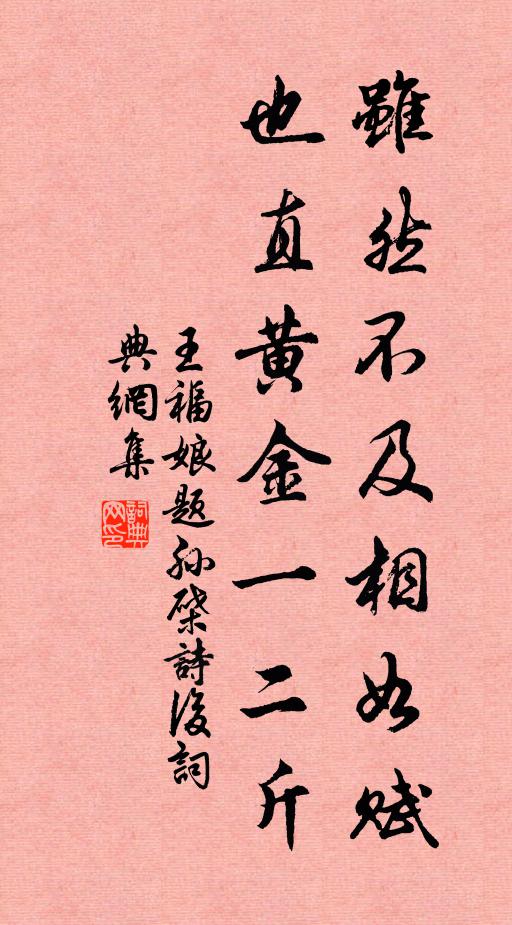 雖然不及相如賦
也直黃金一二斤
王福娘題孙棨詩後詞
典網集
詞典
网印